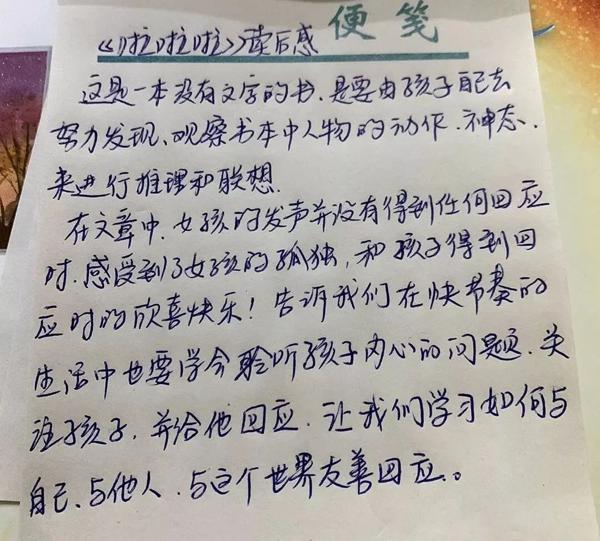 便笺
《啦啦啦》读后感
这是一本没有文字的书、是要由孩子自己去
努力发现、观察书本中人物的动作、神态、
来进行推理和联想.
在文章中、女孩的发声并没有得到任何回应
时、感受到了女孩的孤独,和孩子得到回
应时的欣喜快乐！告诉我们在快节奏的
生活中也要学会聆听孩子内心的问题、关
注孩子、并给他回应、让我们学习如何与
自己、与他人、与这个世界友善回应。